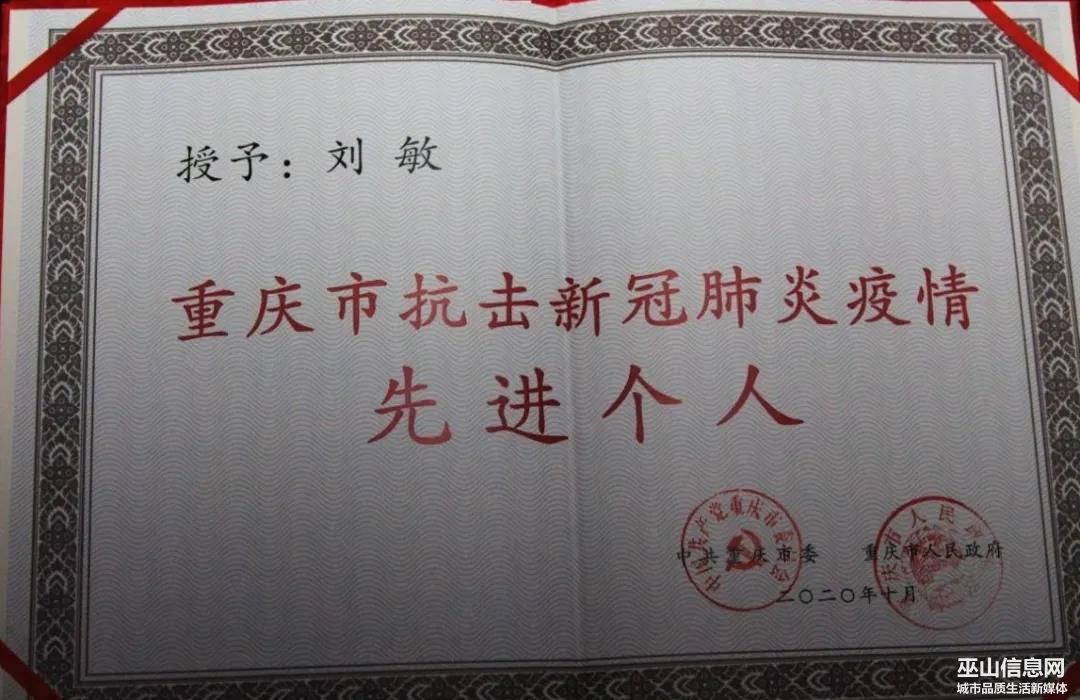 授予：刘敏
重庆市抗击新冠肺炎疫情
先进个人
中国共产党重庆市委员会
中共重庆市委 重庆市人民政府
二〇二〇年十月
巫山信息网
城市品质生活新媒体